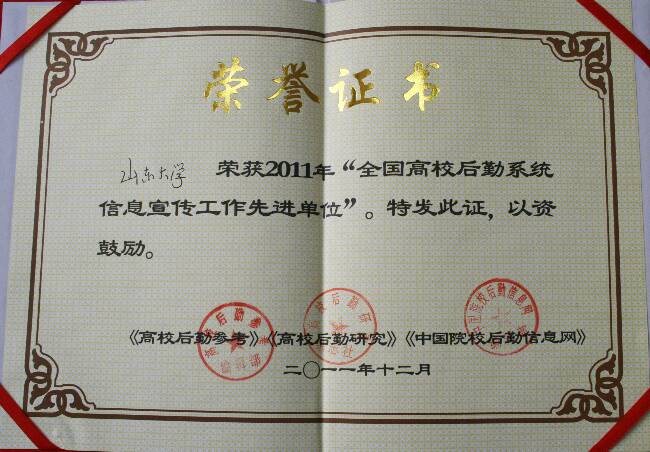 荣誉证书
山东大学 荣获2011年“全国高校后勤系统
信息宣传工作先进单位”。特发此证，以资
鼓励。
《高校后勤参考》《高校后勤研究》《中国院校后勤信息网》
二〇一一年十二月